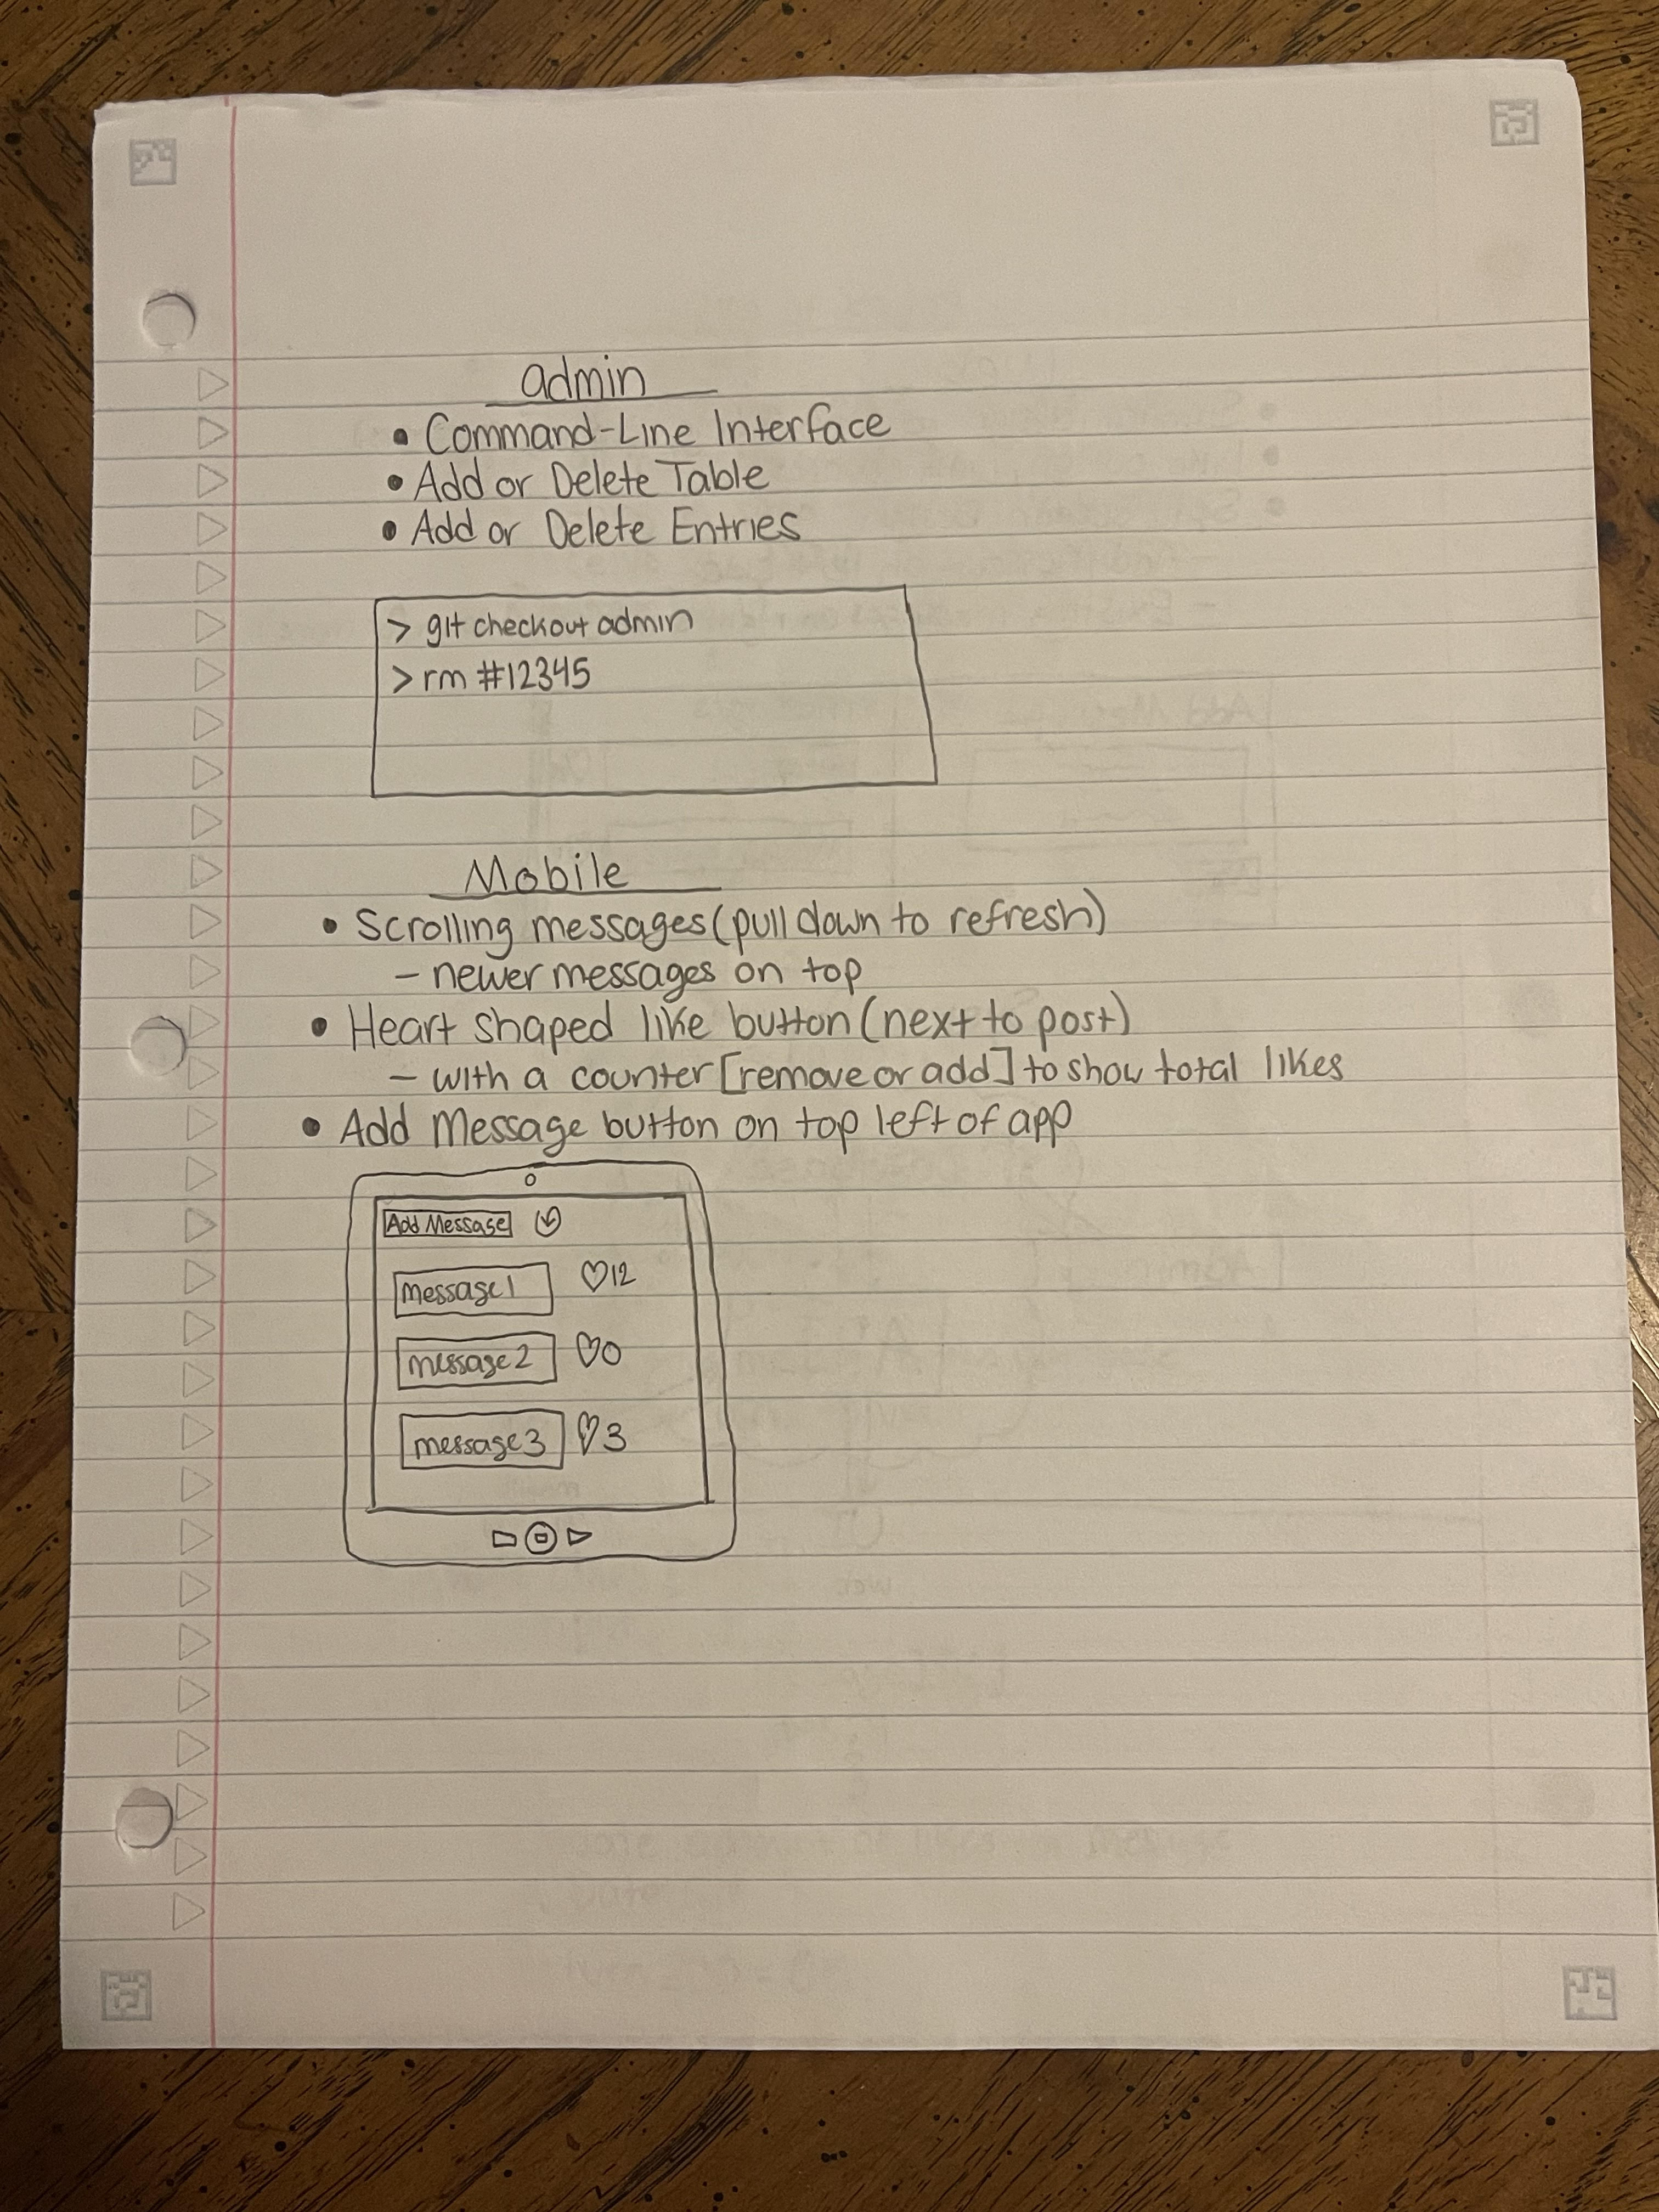 admin
• Command-Line Interface
• Add or Delete Table
• Add or Delete Entries
> git checkout admin
> rm #12345
Mobile
• Scrolling messages (pull down to refresh)
– newer messages on top
• Heart shaped like button (next to post)
– with a counter [remove or add] to show total likes
• Add Message button on top left of app
Add Message
message 1 ♡12
message 2 ♡0
message 3 ♡3